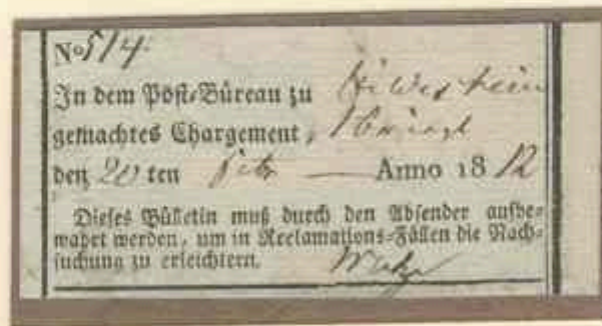 No 514.
In dem Post-Büreau zu Hildesheim
gemachtes Chargement, 1
den 20 ten Febr — Anno 18 12
Dieses Bülletin muß durch den Absender aufbe-
waret werden, um in Reclamations-Fällen die Nach-
suchung zu erleichtern.